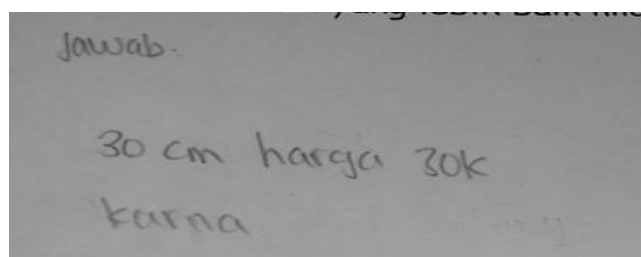 Jawab.
30 cm harga 30k
karna